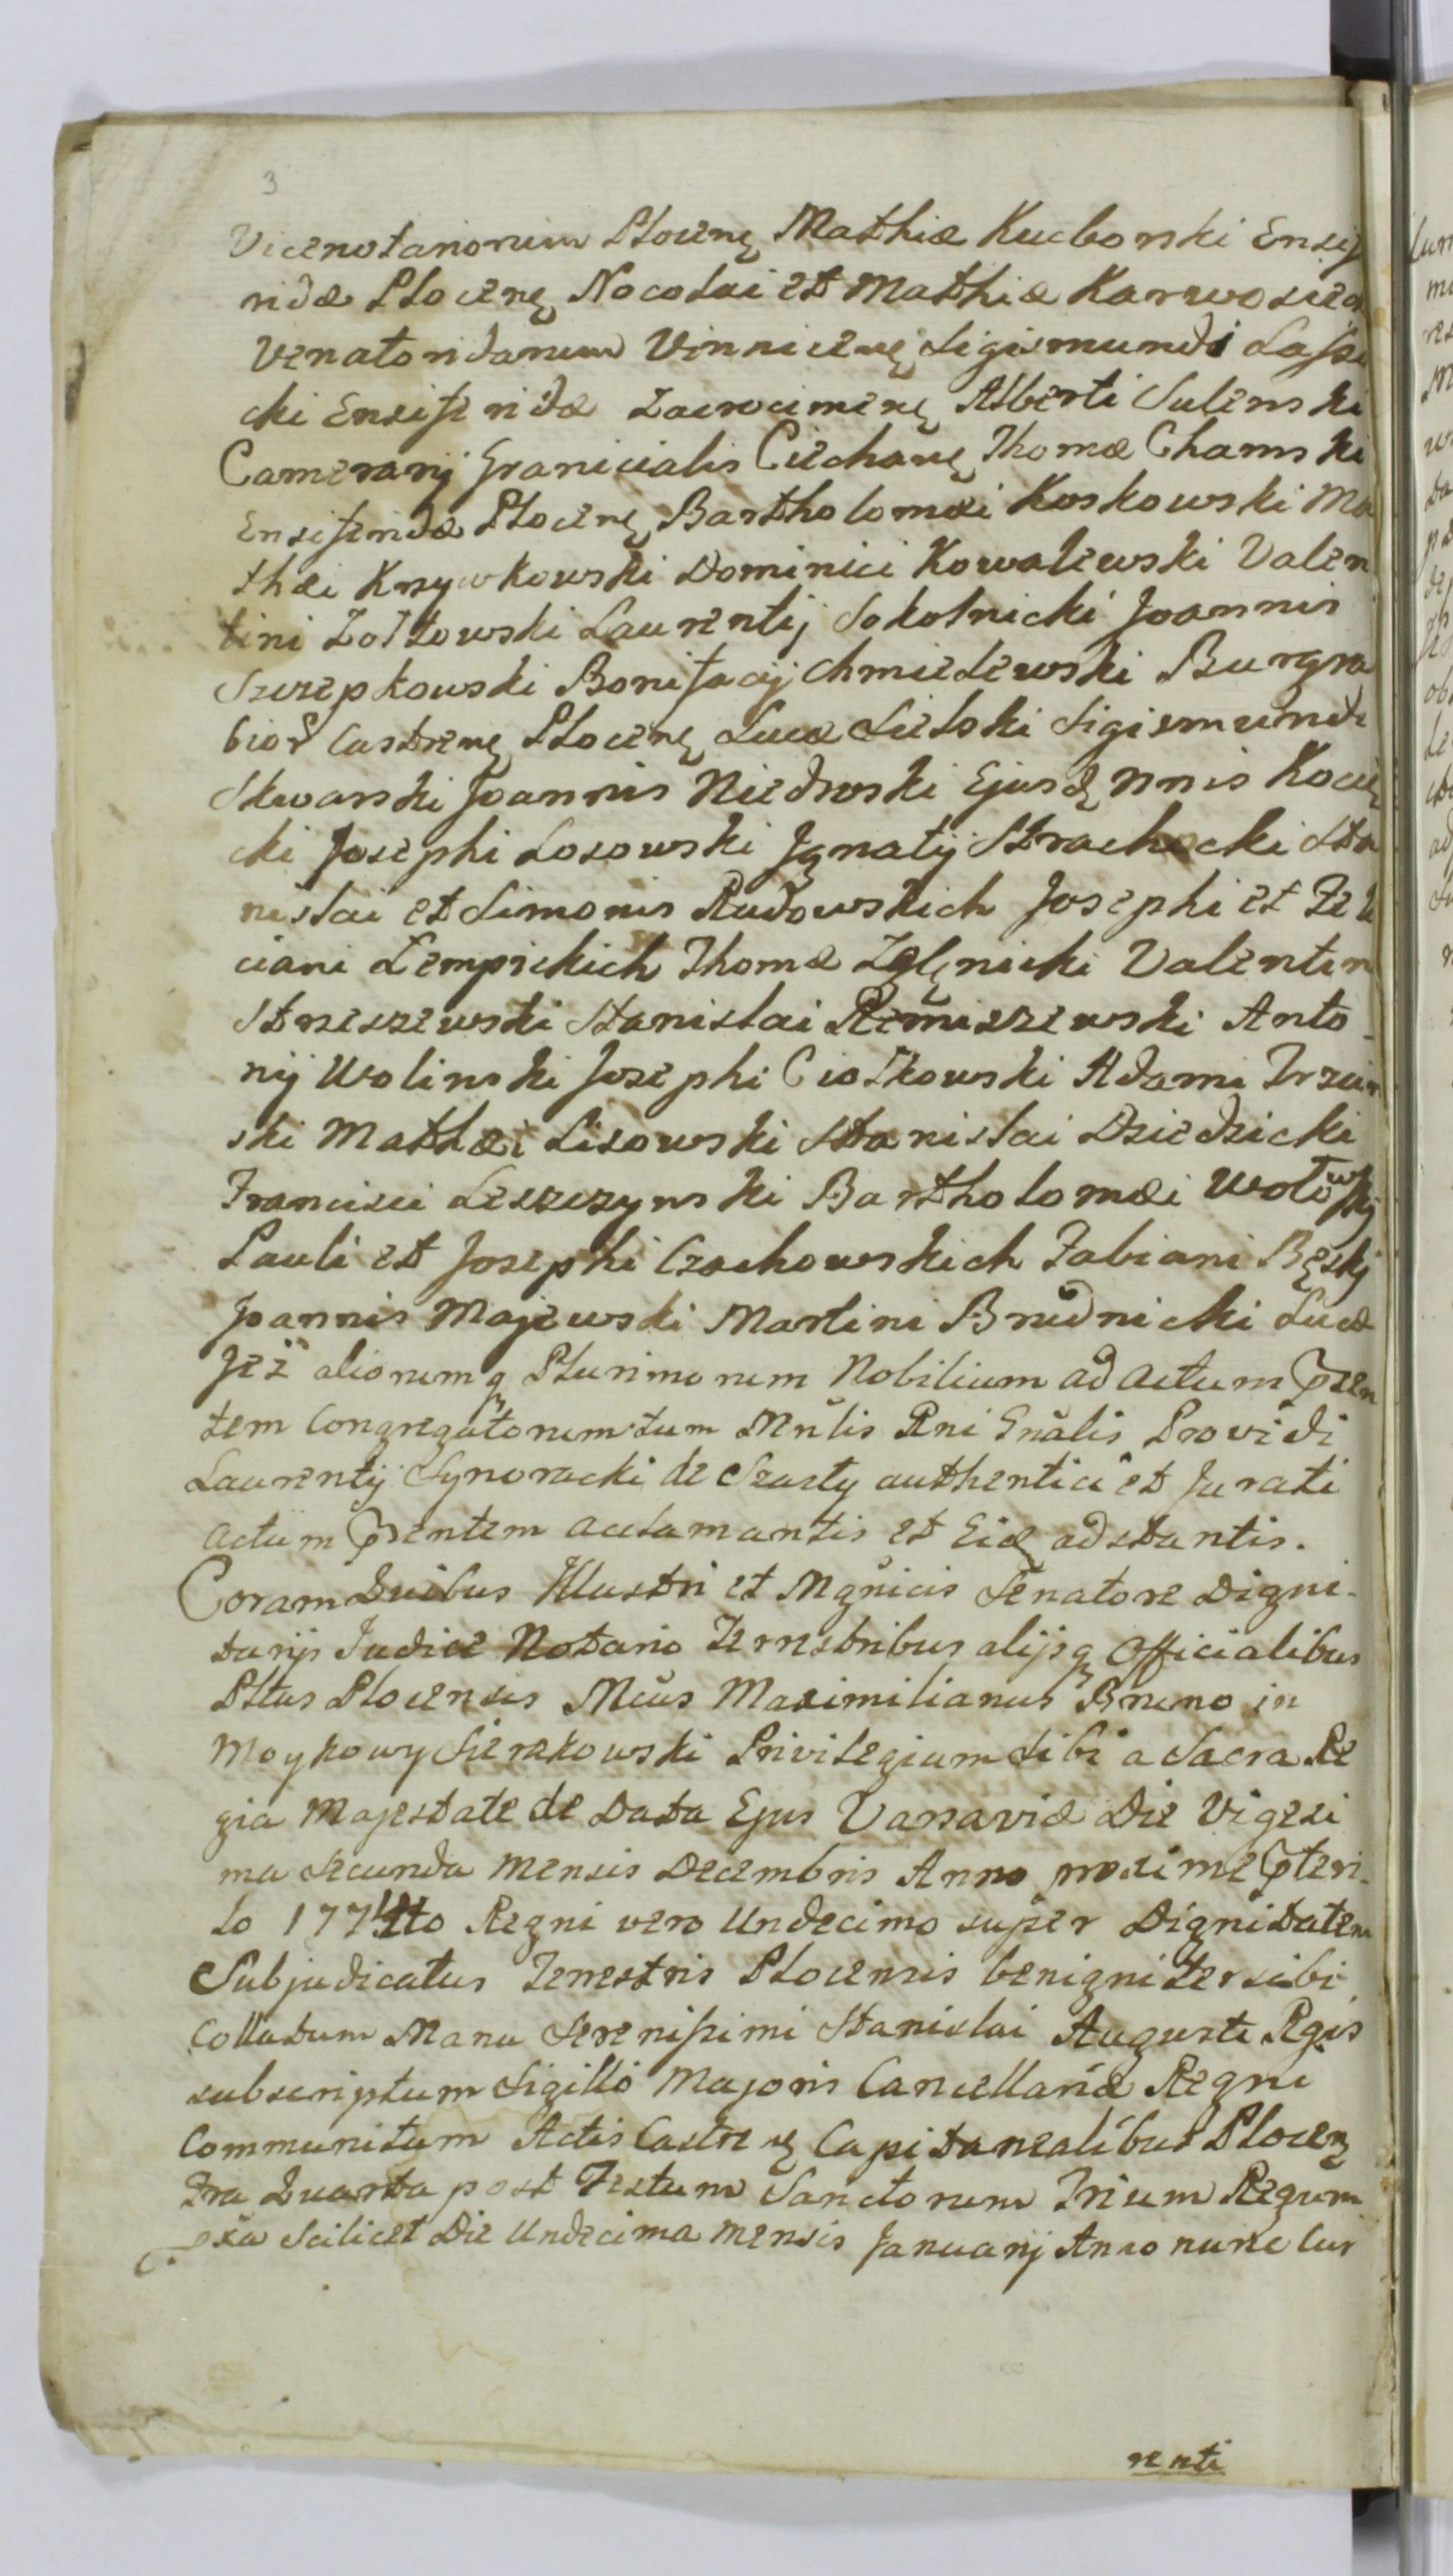 3
Vicenotariorum Plocen̄ Mathiæ Kuchorski Ensif
ridæ Plocen̄ Nocolai et Mathiæ Karwosiec
Venatoridarum Vinnicen̄ Sigismundi Lasso
cki Ensiferidæ Zacrocimen̄ Alberti Sulenski
Camerarij Granicialis Ciechan̄ Thomæ Chamski
Ensiferidæ Plocen̄ Bartholomæi Koskowski Ma
thæi Krzywkowski Dominici Kowalewski Valen
tini Zołtowski Laurentij Sokolnicki Joannis
Szczepkowski Bonifacij Chmielewski Burgra
bior Castren̄ Plocen̄ Lucæ Sielski Sigismundi
Skwarski Joannis Niedroski Ejusd̄ nnis Kocię
cki Josephi Losowski Jgnatij Strachocki Sta
nislai et Simonis Rudowskich Josephi et Feli
ciani Łempickich Thomæ Zglenicki Valentin
Strzeszewski Stanislai Remiszewski Anto
nij Wolinski Josephi Ciołkowski Adami Trzciń
ski Mathæi Lisowski Stanislai Dziedzicki
Francisci Leszczynski Bartholomæi Wołowskj
Pauli et Josephi Czachowskich Fabiani Bęskj
Joannis Majewski Martini Brudnicki Lucæ
Jeż aliorumq̄ Plurimorum Nobilium ad actum Præsen
tem Congregatorum tum Mn̄lis Rni Gnālis Providi
Laurentij Synoracki de Szarty authentici et Jurati
actum Præsentem acclamantis et Eid̄ adstantis.
Coram Quibus Illustri et Mgn̄icis Senatore Digni-
tarijs Judice Notario Terrestribus alijsq̄ Officialibus
Pltus Plocensis Mcus Maximilianus Bruno in
Moykowy Sierakowski Privilegium sibi a Sacra Re
gia Majestate de Data Ejus Varsaviæ Die Vigesi
ma Secunda Mensis Decembris Anno proxime Præteri-
to 1774to Regni vero Undecimo super Dignitatem
Subjudicatus Terrestris Plocensis benigniter sibi
Collatum Manu Serenissimi Stanislai Augusti Rgis
subscriptum Sigillo Majoris Cancellariæ Regni
Communitum Actis Castren̄ Capitanealibus Plocen̄
Fra Quarta post Festum Sanctorum Trium Regum
pxa Scilicet Die Undecima Mensis Januarij Anno nunc Cur
renti